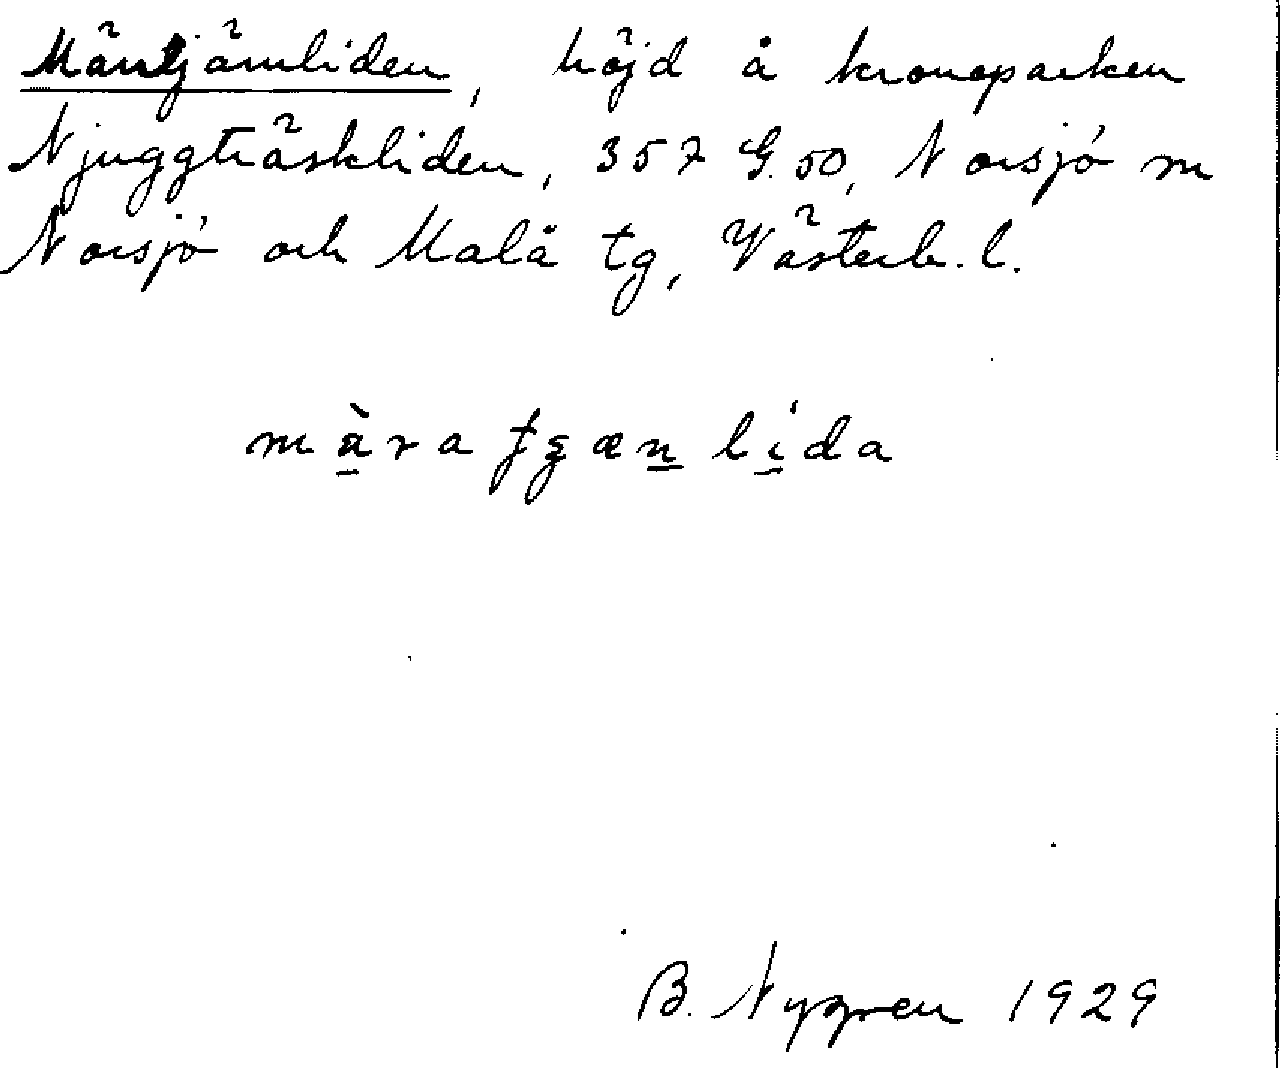 Märrtjärnliden, höjd å kronoparken
Njuggträskliden, 357 G. 50, Norsjö sn
Norsjö och Malå tg, Västerb. l.
B. Nygren 1929